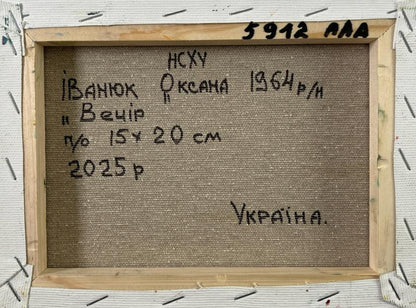 5912 ААА
НСХУ
ІВАНЮК ОКСАНА 1964 р/н
„ Вечір "
п/о 15 х 20 см
2025 р
УКРАЇНА.